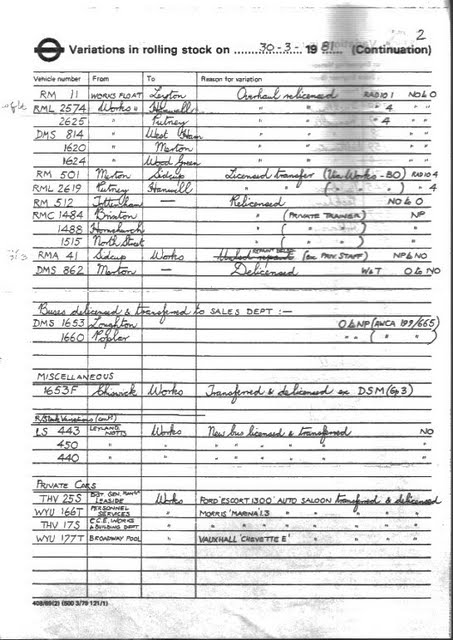 2
Variations in rolling stock on 30-3- 1981 (Continuation)
Vehicle number From To Reason for variation
RM 11 WORKS FLOAT Leyton Overhaul relicensed RAD 10 1 NO to O
RML 2574 Works " Hanwell " " " 4 " "
2625 " Putney " " " 4 " "
DMS 814 " West Ham " " " "
1620 " Merton " " " "
1624 " Wood Green " " " "
RM 501 Merton Sidcup Licensed transfer (Via Works - BO) RAD 10 4
RML 2619 Putney Hanwell " " ( " " " ) " 4
RM 512 Tottenham — Relicensed NO to O
RMC 1484 Brixton " (PRIVATE TRAINER) NP
1488 Hornchurch " ( " " ) "
1515 North Street " ( " " ) "
RMA 41 Sidcup Works (ex PRIV STAFF) NP to NO
DMS 862 Merton — Delicensed W&T O to NO
Buses delicensed & transferred to SALES DEPT :—
DMS 1653 Loughton O to NP (AWCA 199/665)
1660 Poplar " " ( " " )
MISCELLANEOUS
1653F Chiswick Works Transferred & delicensed ex DSM (Gp 3)
LS 443 LEYLAND, NOTTS Works New bus licensed & transferred NO
450 " " " " " " "
440 " " " " " " "
PRIVATE CARS
THV 25S LEASIDE Works FORD 'ESCORT 1300' AUTO SALOON transferred & delicensed
WYU 166T PERSONNEL SERVICES " MORRIS 'MARINA' 1.3 " " "
THV 17S C.C.E. WORKS & BUILDING DEPT " " " " " " "
WYU 177T BROADWAY POOL " VAUXHALL 'CHEVETTE E' " " "
408/69(2) (500 3/79 121/1)